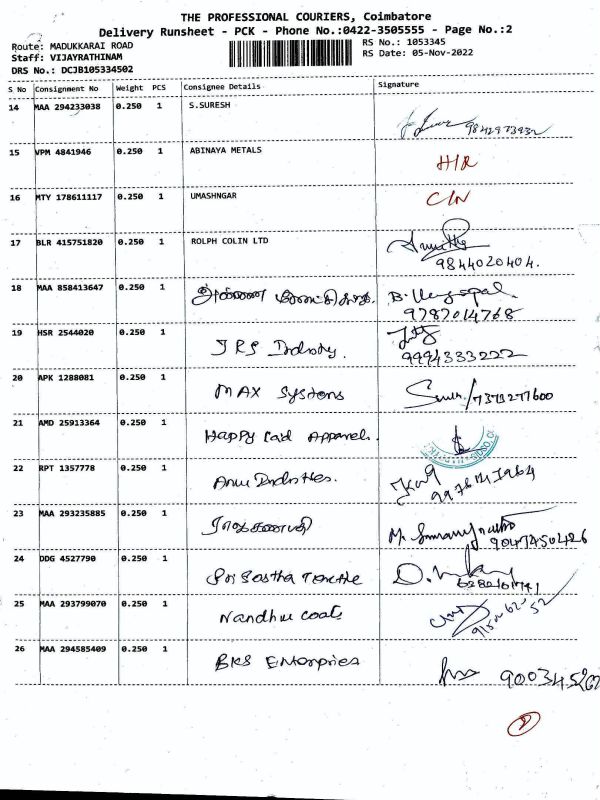 THE PROFESSIONAL COURIERS, Coimbatore
Delivery Runsheet - PCK - Phone No.:0422-3505555 - Page No.:2
Route: MADUKKARAI ROAD
Staff: VIJAYRATHINAM
DRS No.: DCJB105334502
RS No.: 1053345
RS Date: 05-Nov-2022
S No Consignment No Weight PCS Consignee Details Signature
14 MAA 294233038 0.250 1 S.SURESH
15 VPM 4841946 0.250 1 ABINAYA METALS H/R
16 MTY 178611117 0.250 1 UMASHNGAR C/N
17 BLR 415751820 0.250 1 ROLPH COLIN LTD
9844020404.
18 MAA 858413647 0.250 1 B. Venugopal.
9787014768
19 HSR 2544020 0.250 1 JRS Industry.
9994333222
20 APK 1288081 0.250 1 MAX Systems /7373277600
21 AMD 25913364 0.250 1 Happy Kid Apparel.
22 RPT 1357778 0.250 1 Anu Industries.
23 MAA 293235885 0.250 1 ராஜகணபதி
9047450426
24 DDG 4527790 0.250 1 Sri Sastha Textile
25 MAA 293799070 0.250 1 Nandhu coats
26 MAA 294585409 0.250 1 BKS Enterprises